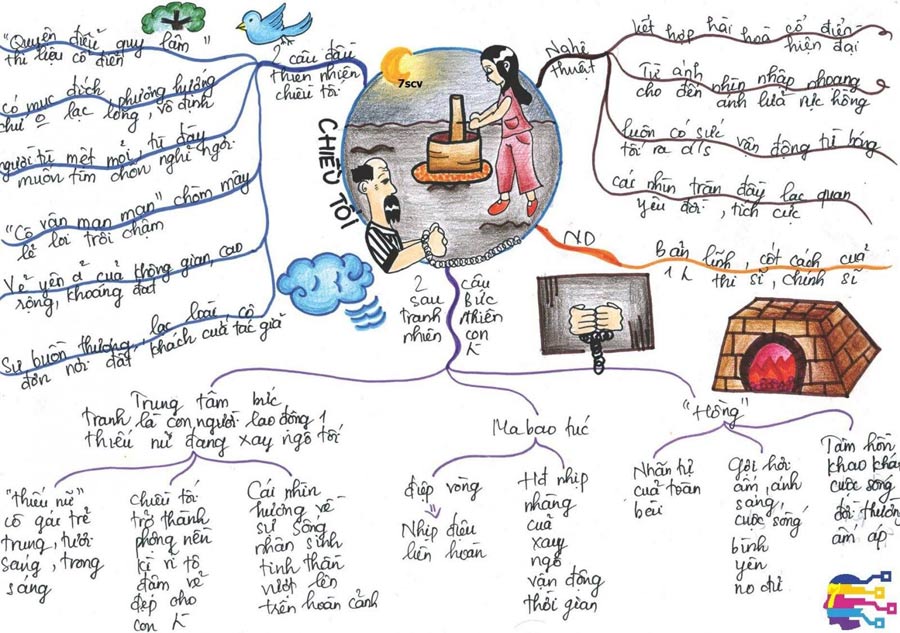 "Quyện điểu quy lâm"
thi liệu cổ điển
có mục đích, phương hướng
chứ o lạc lõng, vô định
người tù mệt mỏi, tù đày
muốn tìm chốn nghỉ ngơi.
"Cô vân mạn mạn" chòm mây
lẻ loi trôi chậm
Vẻ yên ả của không gian, cao
rộng, khoáng đạt
Sự buồn thương, lạc loài, cô
đơn nơi đất khách của tác giả
2 câu đầu
thiên nhiên
chiều tối
7scv
CHIỀU TỐI
Nghệ
thuật
kết hợp hài hoà cổ điển
hiện đại
Từ ánh nhìn nhập nhoạng
cho đến ánh lửa rực hồng
luôn có sức vận động từ bóng
tối ra a/s
cái nhìn tràn đầy lạc quan
yêu đời, tích cực
ND
Bản lĩnh, cốt cách của
1 thi sĩ, chính sĩ
2 câu
sau Bức
tranh thiên
nhiên con
Trung tâm bức
tranh là con người lao động 1
thiếu nữ đang xay ngô tối
"thiếu nữ"
cô gái trẻ
trung, tươi
sáng, trong
sáng
chiều tối
trở thành
phông nền
kì vĩ tô
đậm vẻ
đẹp cho
con
Cái nhìn
hướng về
sự sống
nhân sinh
tinh thần
vượt lên
trên hoàn cảnh
Ma bao túc
điệp vòng
Nhịp điệu
liên hoàn
HĐ nhịp
nhàng
của
xay
ngô
vận động
thời gian
"Hồng"
Nhãn tự
của toàn
bài
Gợi hơi
ấm, ánh
sáng,
cuộc sống
bình
yên
no đủ
Tâm hồn
khao khát
cuộc sống
đời thường
ấm áp